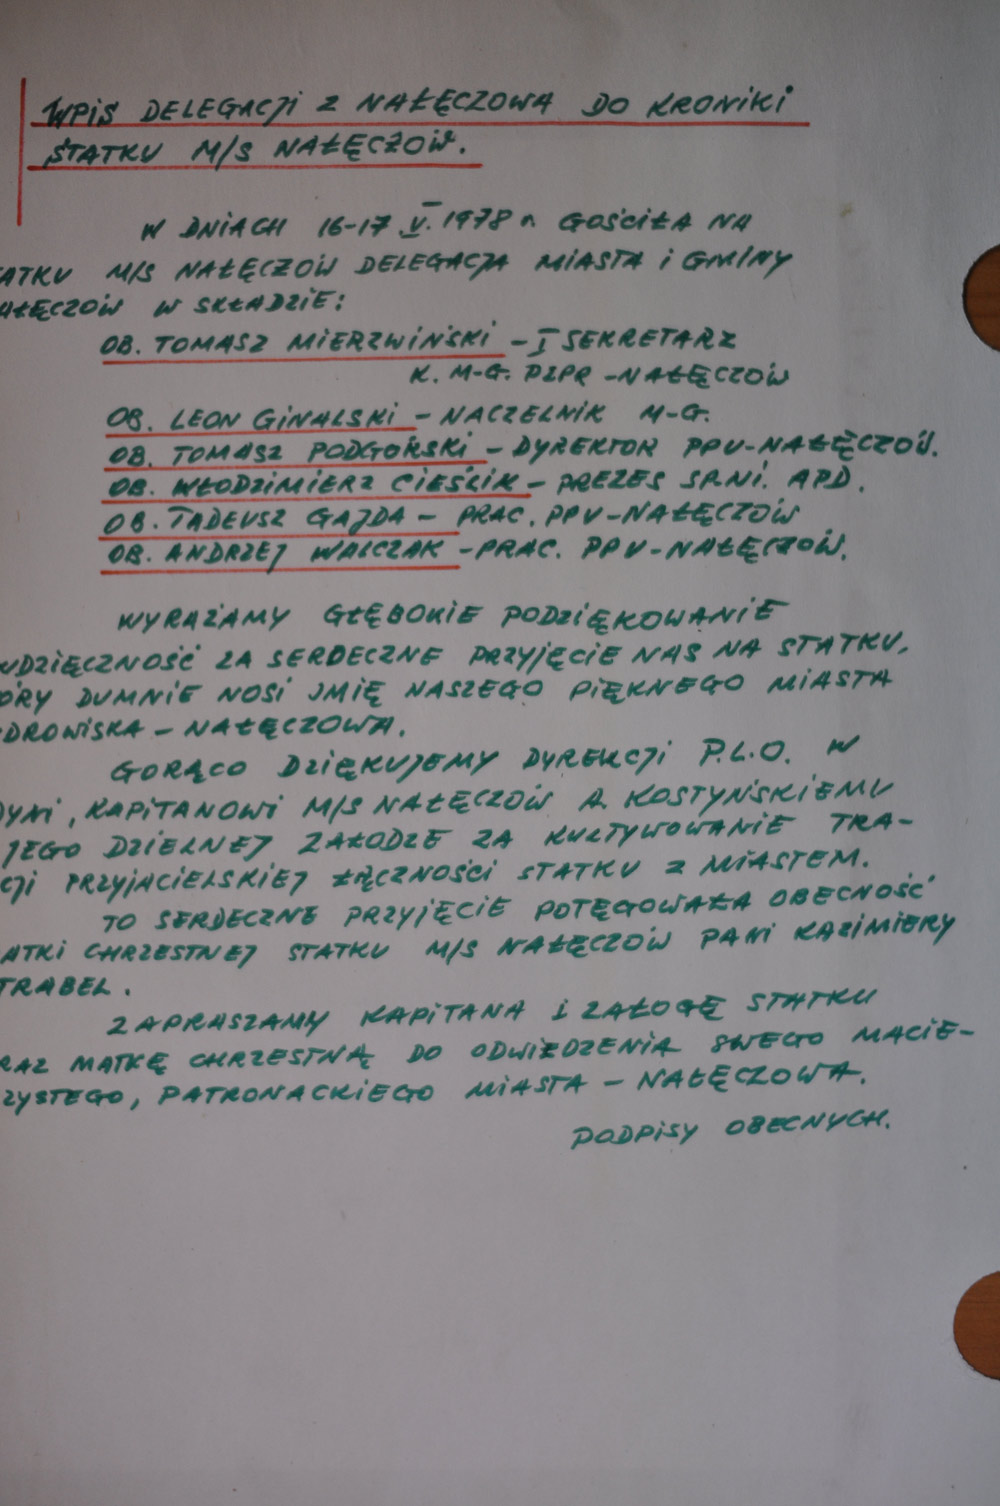 WPIS DELEGACJI Z NAŁĘCZOWA DO KRONIKI
STATKU M/S NAŁĘCZÓW.
W DNIACH 16-17 V. 1978 r. GOŚCIŁA NA
ATKU M/S NAŁĘCZÓW DELEGACJA MIASTA i GMINY
AŁĘCZÓW W SKŁADZIE:
OB. TOMASZ MIERZWIŃSKI - I SEKRETARZ
K. M-G. PZPR - NAŁĘCZÓW
OB. LEON GINALSKI - NACZELNIK M-G.
OB. TOMASZ PODGÓRSKI - DYREKTOR PPU-NAŁĘCZÓW.
OB. WŁODZIMIERZ CIEŚLIK - PREZES SP.NI. APD.
OB. TADEUSZ GAJDA - PRAC. PPU-NAŁĘCZÓW
OB. ANDRZEJ WALCZAK - PRAC. PPU-NAŁĘCZÓW.
WYRAŻAMY GŁĘBOKIE PODZIĘKOWANIE
WDZIĘCZNOŚĆ ZA SERDECZNE PRZYJĘCIE NAS NA STATKU,
ÓRY DUMNIE NOSI IMIĘ NASZEGO PIĘKNEGO MIASTA
DROWISKA - NAŁĘCZOWA.
GORĄCO DZIĘKUJEMY DYREKCJI P.L.O. W
DYNI, KAPITANOWI M/S NAŁĘCZÓW A. KOSTYŃSKIEMU
JEGO DZIELNEJ ZAŁODZE ZA KULTYWOWANIE TRA-
CJI PRZYJACIELSKIEJ ŁĄCZNOŚCI STATKU Z MIASTEM.
TO SERDECZNE PRZYJĘCIE POTĘGOWAŁA OBECNOŚĆ
ATKI CHRZESTNEJ STATKU M/S NAŁĘCZÓW PANI KAZIMIERY
TRABEL.
ZAPRASZAMY KAPITANA I ZAŁOGĘ STATKU
RAZ MATKĘ CHRZESTNĄ DO ODWIEDZENIA SWEGO MACIE-
ZYSTEGO, PATRONACKIEGO MIASTA - NAŁĘCZOWA.
PODPISY OBECNYCH.